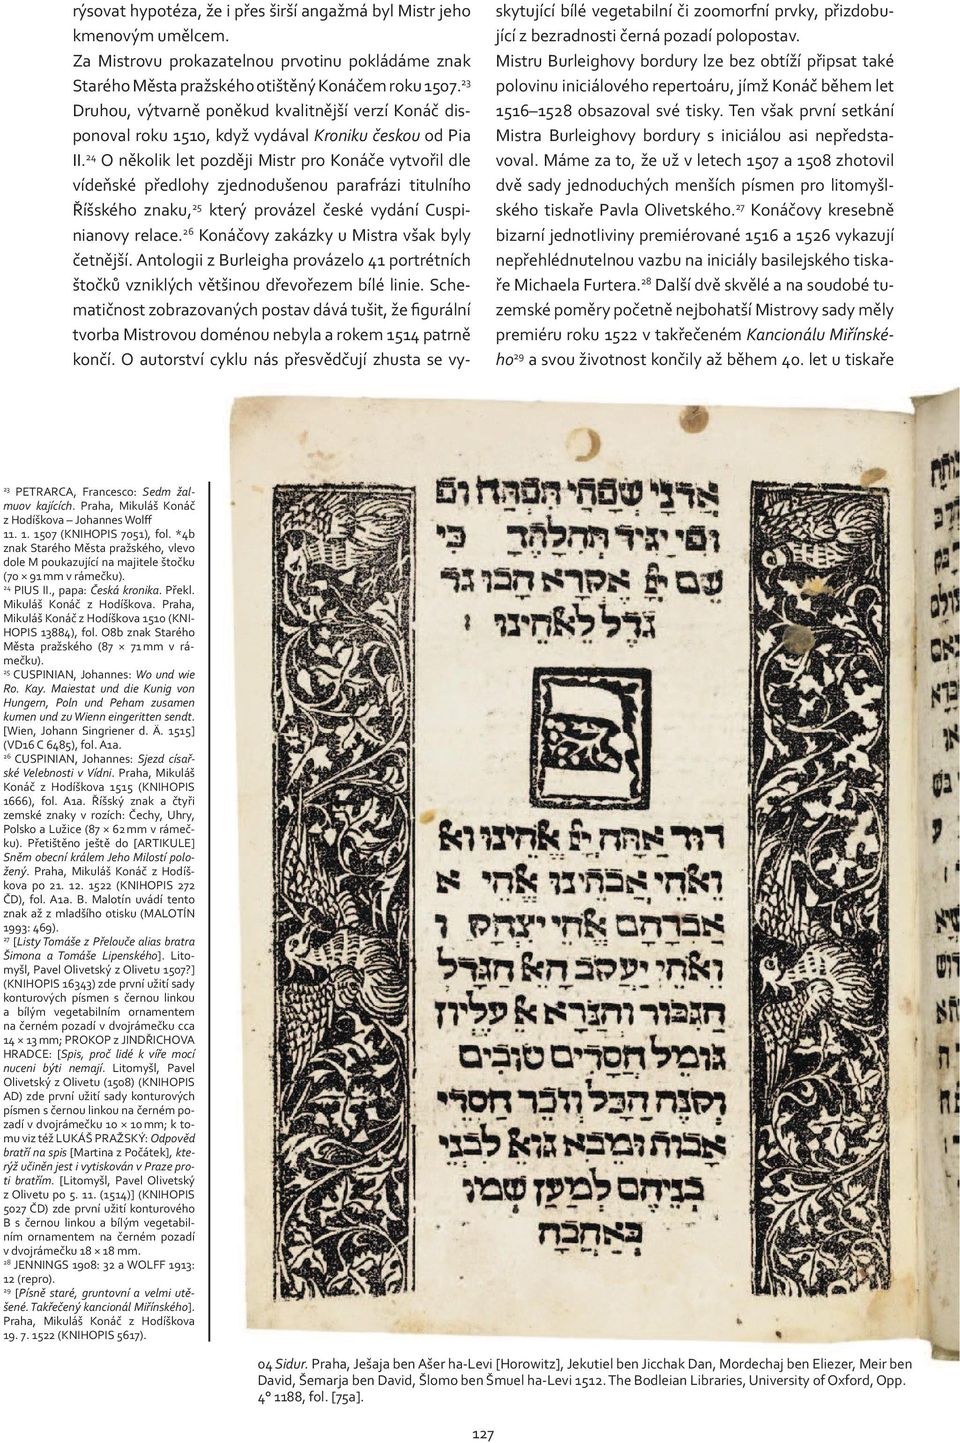 rýsovat hypotéza, že i přes širší angažmá byl Mistr jeho
kmenovým umělcem.
Za Mistrovu prokazatelnou prvotinu pokládáme znak
Starého Města pražského otištěný Konáčem roku 1507.²³
Druhou, výtvarně poněkud kvalitnější verzí Konáč dis-
ponoval roku 1510, když vydával Kroniku českou od Pia
II.²⁴ O několik let později Mistr pro Konáče vytvořil dle
vídeňské předlohy zjednodušenou parafrázi titulního
Říšského znaku,²⁵ který provázel české vydání Cuspi-
nianovy relace.²⁶ Konáčovy zakázky u Mistra však byly
četnější. Antologii z Burleigha provázelo 41 portrétních
štočků vzniklých většinou dřevořezem bílé linie. Sche-
matičnost zobrazovaných postav dává tušit, že figurální
tvorba Mistrovou doménou nebyla a rokem 1514 patrně
končí. O autorství cyklu nás přesvědčují zhusta se vy-
skytující bílé vegetabilní či zoomorfní prvky, přizdobu-
jící z bezradnosti černá pozadí polopostav.
Mistru Burleighovy bordury lze bez obtíží připsat také
polovinu iniciálového repertoáru, jímž Konáč během let
1516–1528 obsazoval své tisky. Ten však první setkání
Mistra Burleighovy bordury s iniciálou asi nepředsta-
voval. Máme za to, že už v letech 1507 a 1508 zhotovil
dvě sady jednoduchých menších písmen pro litomyšl-
ského tiskaře Pavla Olivetského.²⁷ Konáčovy kresebně
bizarní jednotliviny premiérované 1516 a 1526 vykazují
nepřehlédnutelnou vazbu na iniciály basilejského tiska-
ře Michaela Furtera.²⁸ Další dvě skvělé a na soudobé tu-
zemské poměry početně nejbohatší Mistrovy sady měly
premiéru roku 1522 v takřečeném Kancionálu Miřínské-
ho²⁹ a svou životnost končily až během 40. let u tiskaře
²³ PETRARCA, Francesco: Sedm žal-
muov kajících. Praha, Mikuláš Konáč
z Hodíškova – Johannes Wolff
11. 1. 1507 (KNIHOPIS 7051), fol. *4b
znak Starého Města pražského, vlevo
dole M poukazující na majitele štočku
(70 × 91 mm v rámečku).
²⁴ PIUS II., papa: Česká kronika. Překl.
Mikuláš Konáč z Hodíškova. Praha,
Mikuláš Konáč z Hodíškova 1510 (KNI-
HOPIS 13884), fol. O8b znak Starého
Města pražského (87 × 71 mm v rá-
mečku).
²⁵ CUSPINIAN, Johannes: Wo und wie
Ro. Kay. Maiestat und die Kunig von
Hungern, Poln und Peham zusamen
kumen und zu Wienn eingeritten sendt.
[Wien, Johann Singriener d. Ä. 1515]
(VD16 C 6485), fol. A1a.
²⁶ CUSPINIAN, Johannes: Sjezd císař-
ské Velebnosti v Vídni. Praha, Mikuláš
Konáč z Hodíškova 1515 (KNIHOPIS
1666), fol. A1a. Říšský znak a čtyři
zemské znaky v rozích: Čechy, Uhry,
Polsko a Lužice (87 × 62 mm v rámeč-
ku). Přetištěno ještě do [ARTIKULE]
Sněm obecní králem Jeho Milostí polo-
žený. Praha, Mikuláš Konáč z Hodíš-
kova po 21. 12. 1522 (KNIHOPIS 272
ČD), fol. A1a. B. Malotín uvádí tento
znak až z mladšího otisku (MALOTÍN
1993: 469).
²⁷ [Listy Tomáše z Přelouče alias bratra
Šimona a Tomáše Lipenského]. Lito-
myšl, Pavel Olivetský z Olivetu 1507?]
(KNIHOPIS 16343) zde první užití sady
konturových písmen s černou linkou
a bílým vegetabilním ornamentem
na černém pozadí v dvojrámečku cca
14 × 13 mm; PROKOP z JINDŘICHOVA
HRADCE: [Spis, proč lidé k víře mocí
nuceni býti nemají. Litomyšl, Pavel
Olivetský z Olivetu (1508) (KNIHOPIS
AD) zde první užití sady konturových
písmen s černou linkou na černém po-
zadí v dvojrámečku 10 × 10 mm; k to-
mu viz též LUKÁŠ PRAŽSKÝ: Odpověd
bratří na spis [Martina z Počátek], kte-
rýž učiněn jest i vytiskován v Praze pro-
ti bratřím. [Litomyšl, Pavel Olivetský
z Olivetu po 5. 11. (1514)] (KNIHOPIS
5027 ČD) zde první užití konturového
B s černou linkou a bílým vegetabil-
ním ornamentem na černém pozadí
v dvojrámečku 18 × 18 mm.
²⁸ JENNINGS 1908: 32 a WOLFF 1913:
12 (repro).
²⁹ [Písně staré, gruntovní a velmi utě-
šené. Takřečený kancionál Miřínského].
Praha, Mikuláš Konáč z Hodíškova
19. 7. 1522 (KNIHOPIS 5617).
אדני שפתי תפתח ופי
יגיד תהלתך כי
שם יי אקרא הבו גדל
לאלהינו
ב
רוך אתה יי אלהינו וא
ואלהי אבתינו אלהי א
אברהם אלהי יצחק ו
ואלהי יעקב האל הגדל
הגבור והנורא אל עליון
גומל חסדים טובים
וקנה הכל וזכר חסדי
אבות ומביא גואל לבני
בניהם למען שמו
באהבה
04 Sidur. Praha, Ješaja ben Ašer ha-Levi [Horowitz], Jekutiel ben Jicchak Dan, Mordechaj ben Eliezer, Meir ben
David, Šemarja ben David, Šlomo ben Šmuel ha-Levi 1512. The Bodleian Libraries, University of Oxford, Opp.
4° 1188, fol. [75a].
127